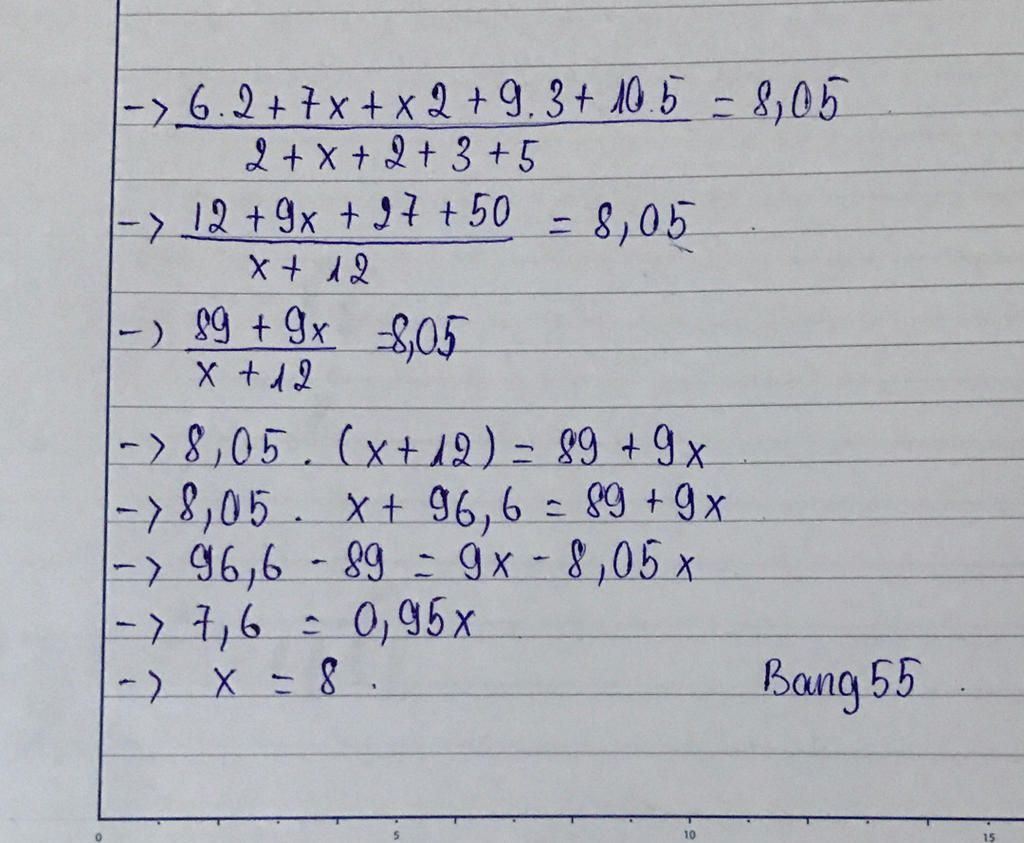 -> 6.2+7x+x2+9.3+10.5 = 8,05
2+x+2+3+5
-> 12+9x+27+50 = 8,05
x+12
-> 89+9x =8,05
x+12
-> 8,05.(x+12)=89+9x
-> 8,05. x+96,6=89+9x
-> 96,6-89=9x-8,05x
-> 7,6=0,95x
-> x=8.
Bang55
0 5 10 15